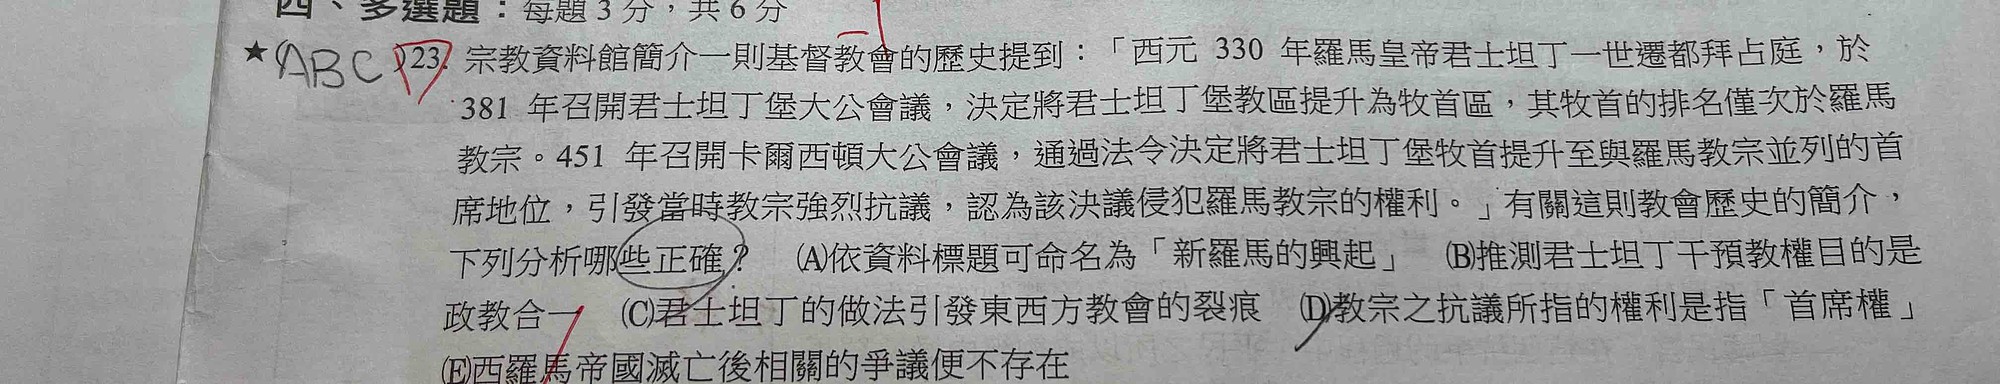 四、多選題：每題 3 分，共 6 分
★(ABC)23. 宗教資料館簡介一則基督教會的歷史提到：「西元 330 年羅馬皇帝君士坦丁一世遷都拜占庭，於
381 年召開君士坦丁堡大公會議，決定將君士坦丁堡教區提升為牧首區，其牧首的排名僅次於羅馬
教宗。451 年召開卡爾西頓大公會議，通過法令決定將君士坦丁堡牧首提升至與羅馬教宗並列的首
席地位，引發當時教宗強烈抗議，認為該決議侵犯羅馬教宗的權利。」有關這則教會歷史的簡介，
下列分析哪些正確？ (A)依資料標題可命名為「新羅馬的興起」 (B)推測君士坦丁干預教權目的是
政教合一 (C)君士坦丁的做法引發東西方教會的裂痕 (D)教宗之抗議所指的權利是指「首席權」
(E)西羅馬帝國滅亡後相關的爭議便不存在